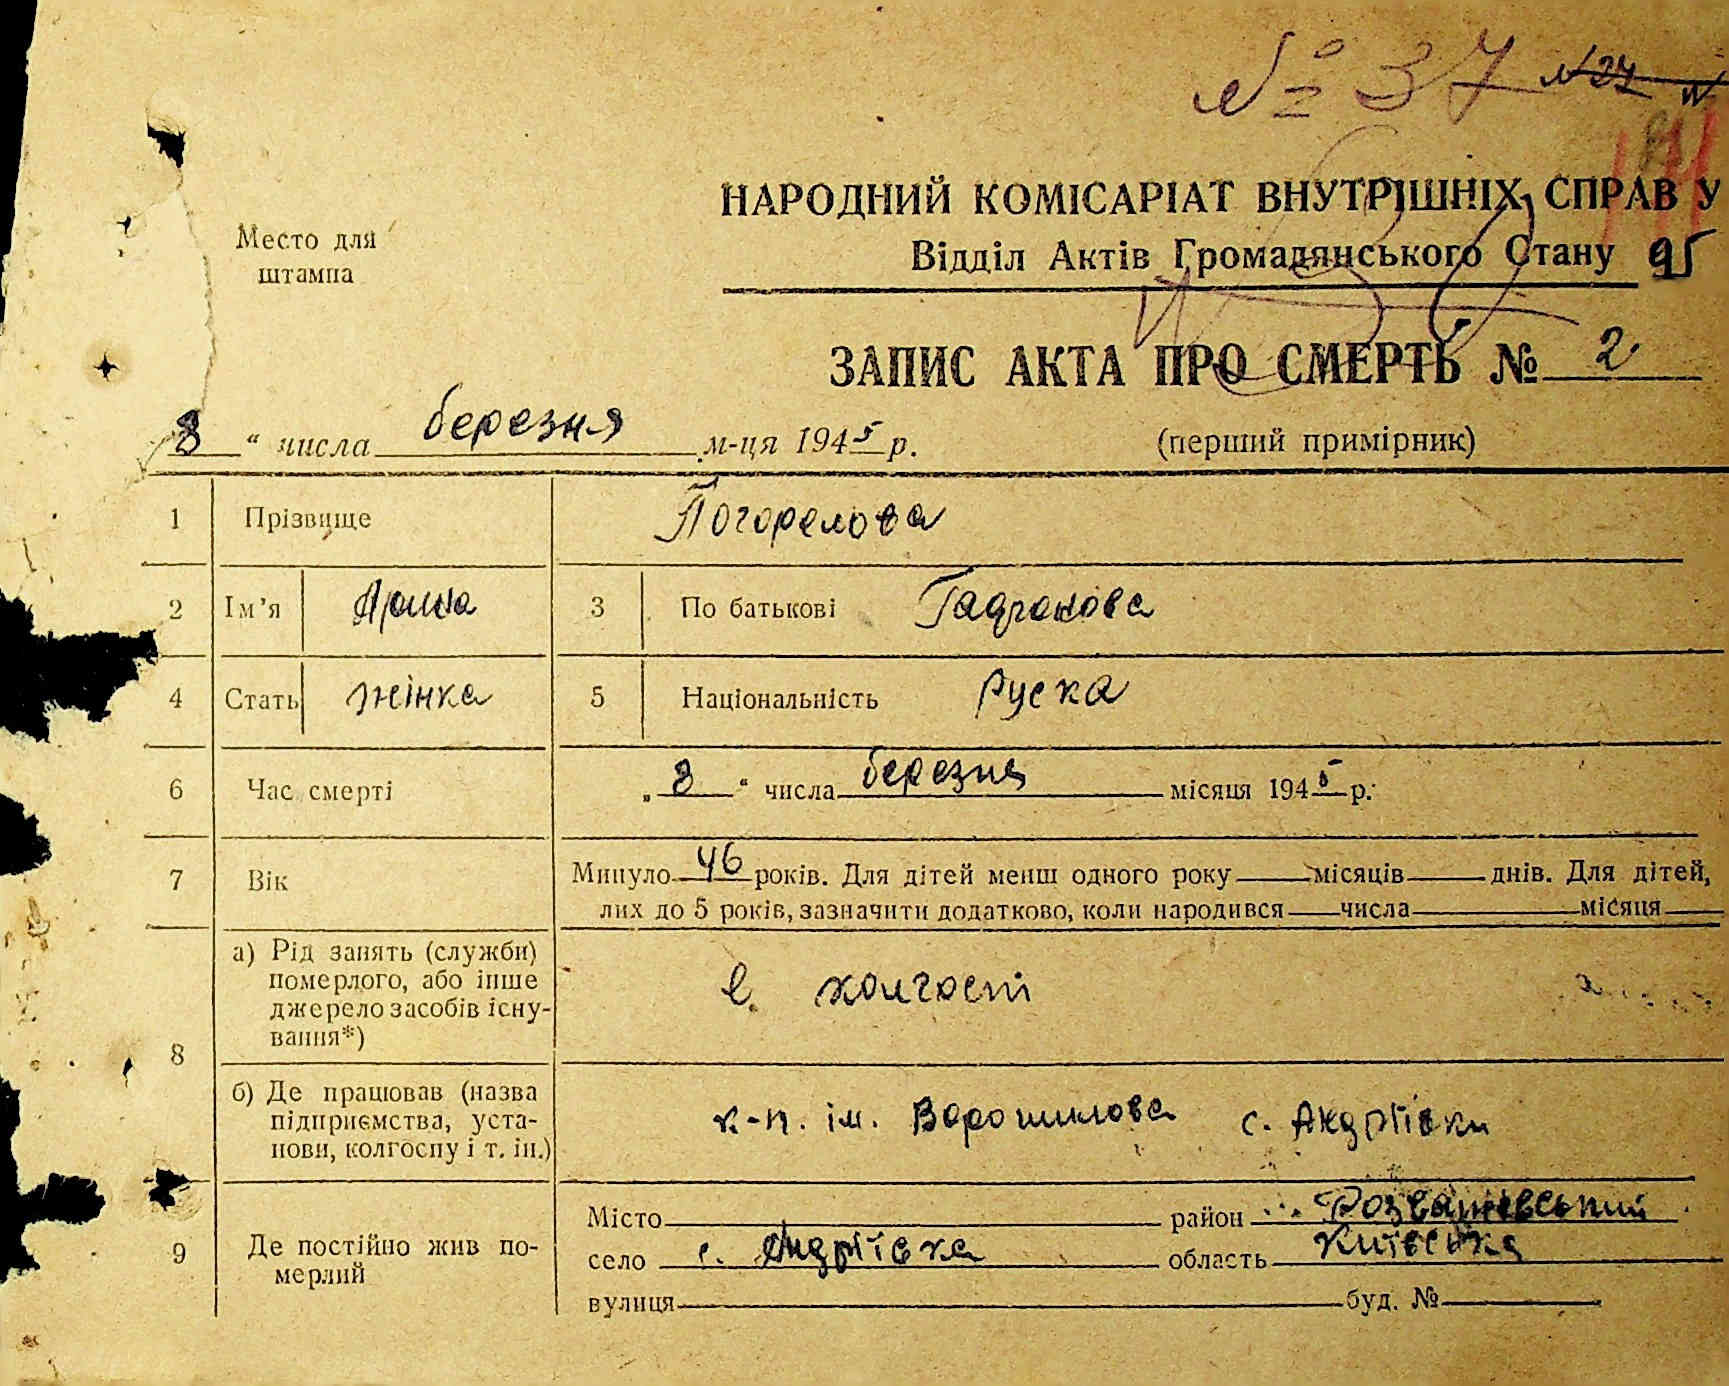 № 37 №27
НАРОДНИЙ КОМІСАРІАТ ВНУТРІШНІХ СПРАВ У
Место для
штампа
Відділ Актів Громадянського Стану 95
ЗАПИС АКТА ПРО СМЕРТЬ № 2
8 " числа березня м-ця 1945 р. (перший примірник)
1 Прізвище Погорелова
2 Ім'я 3 По батькові
4 Стать жінка 5 Національність Руска
6 Час смерті „ 8 " числа березня місяця 1945 р.
7 Вік Минуло 46 років. Для дітей менш одного року місяців днів. Для дітей,
лих до 5 років, зазначити додатково, коли народився числа місяця
8 а) Рід занять (служби)
померлого, або інше
джерело засобів існу-
вання*)
в колгоспі
б) Де працював (назва
підприємства, уста-
нови, колгоспу і т. ін.)
к-п. ім. Ворошилова с. Андріївки
9 Де постійно жив по-
мерлий
Місто район Розважевський
село с. Андріївка область Київська
вулиця буд. №